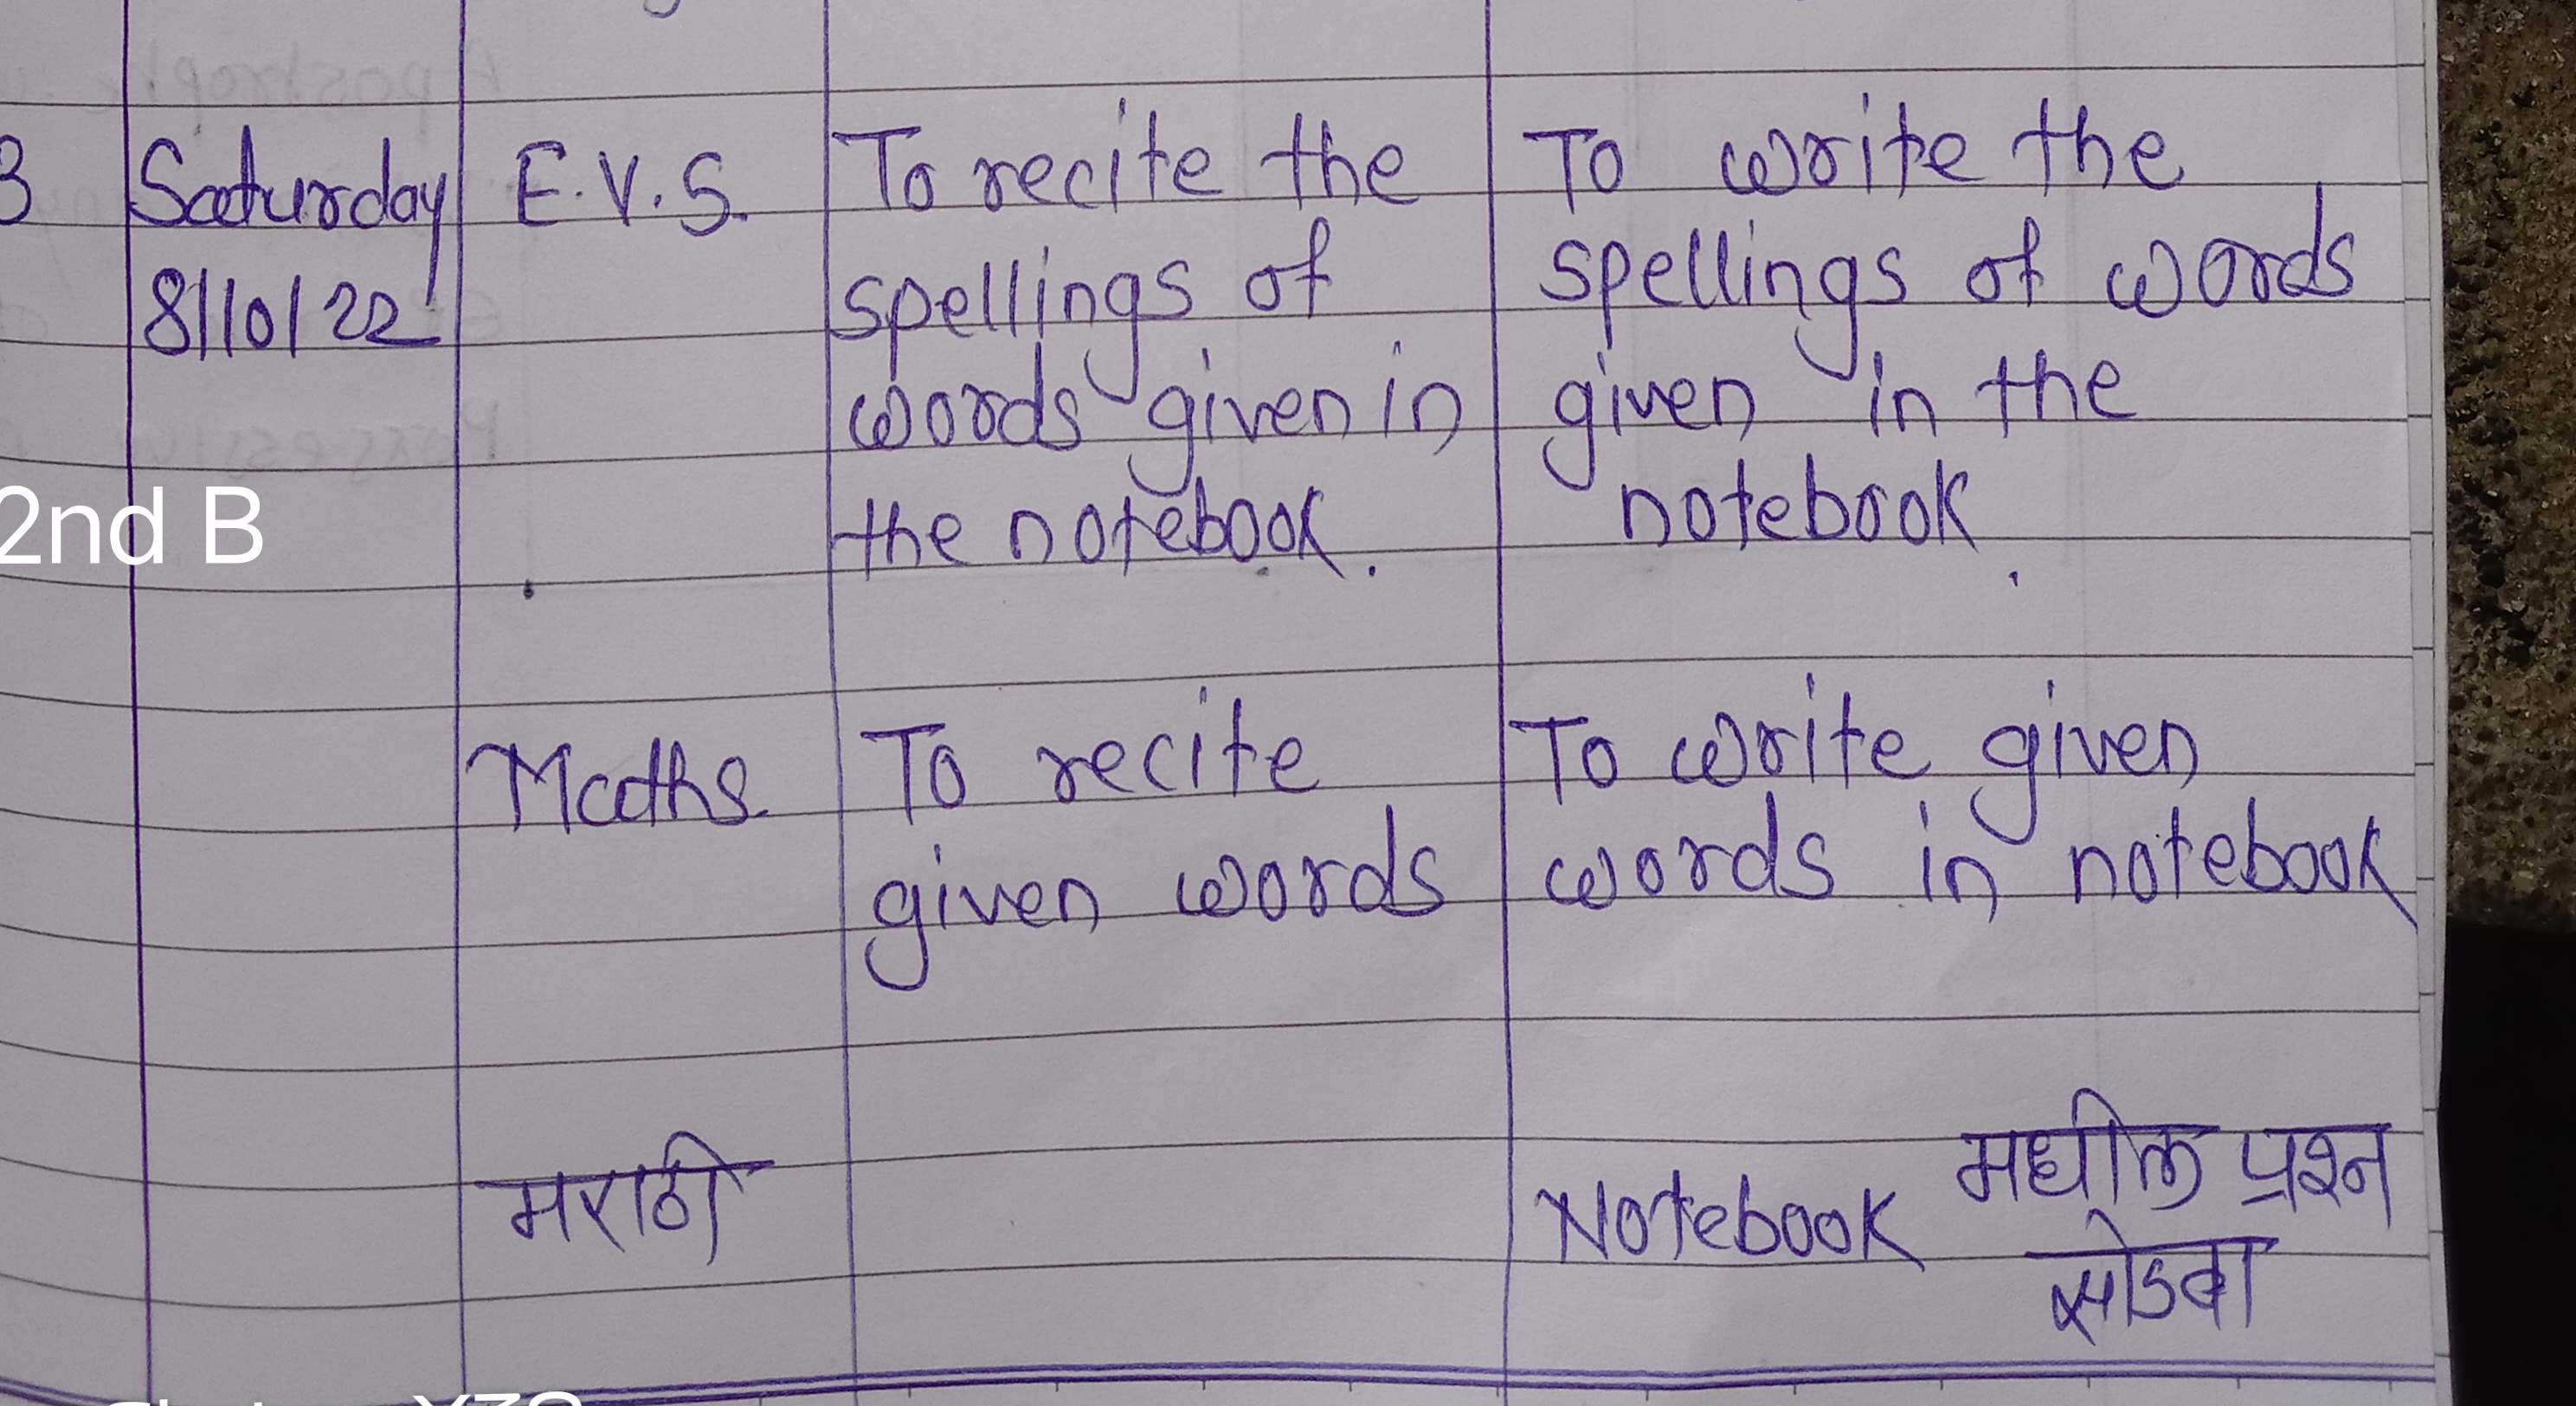 3 Saturday E.V.S. To recite the To write the
8/10/22 spellings of spellings of words
words given in given in the
the notebook. notebook.
2nd B
Maths. To recite To write given
given words words in notebook
मराठी Notebook मधील प्रश्न
सोडवा